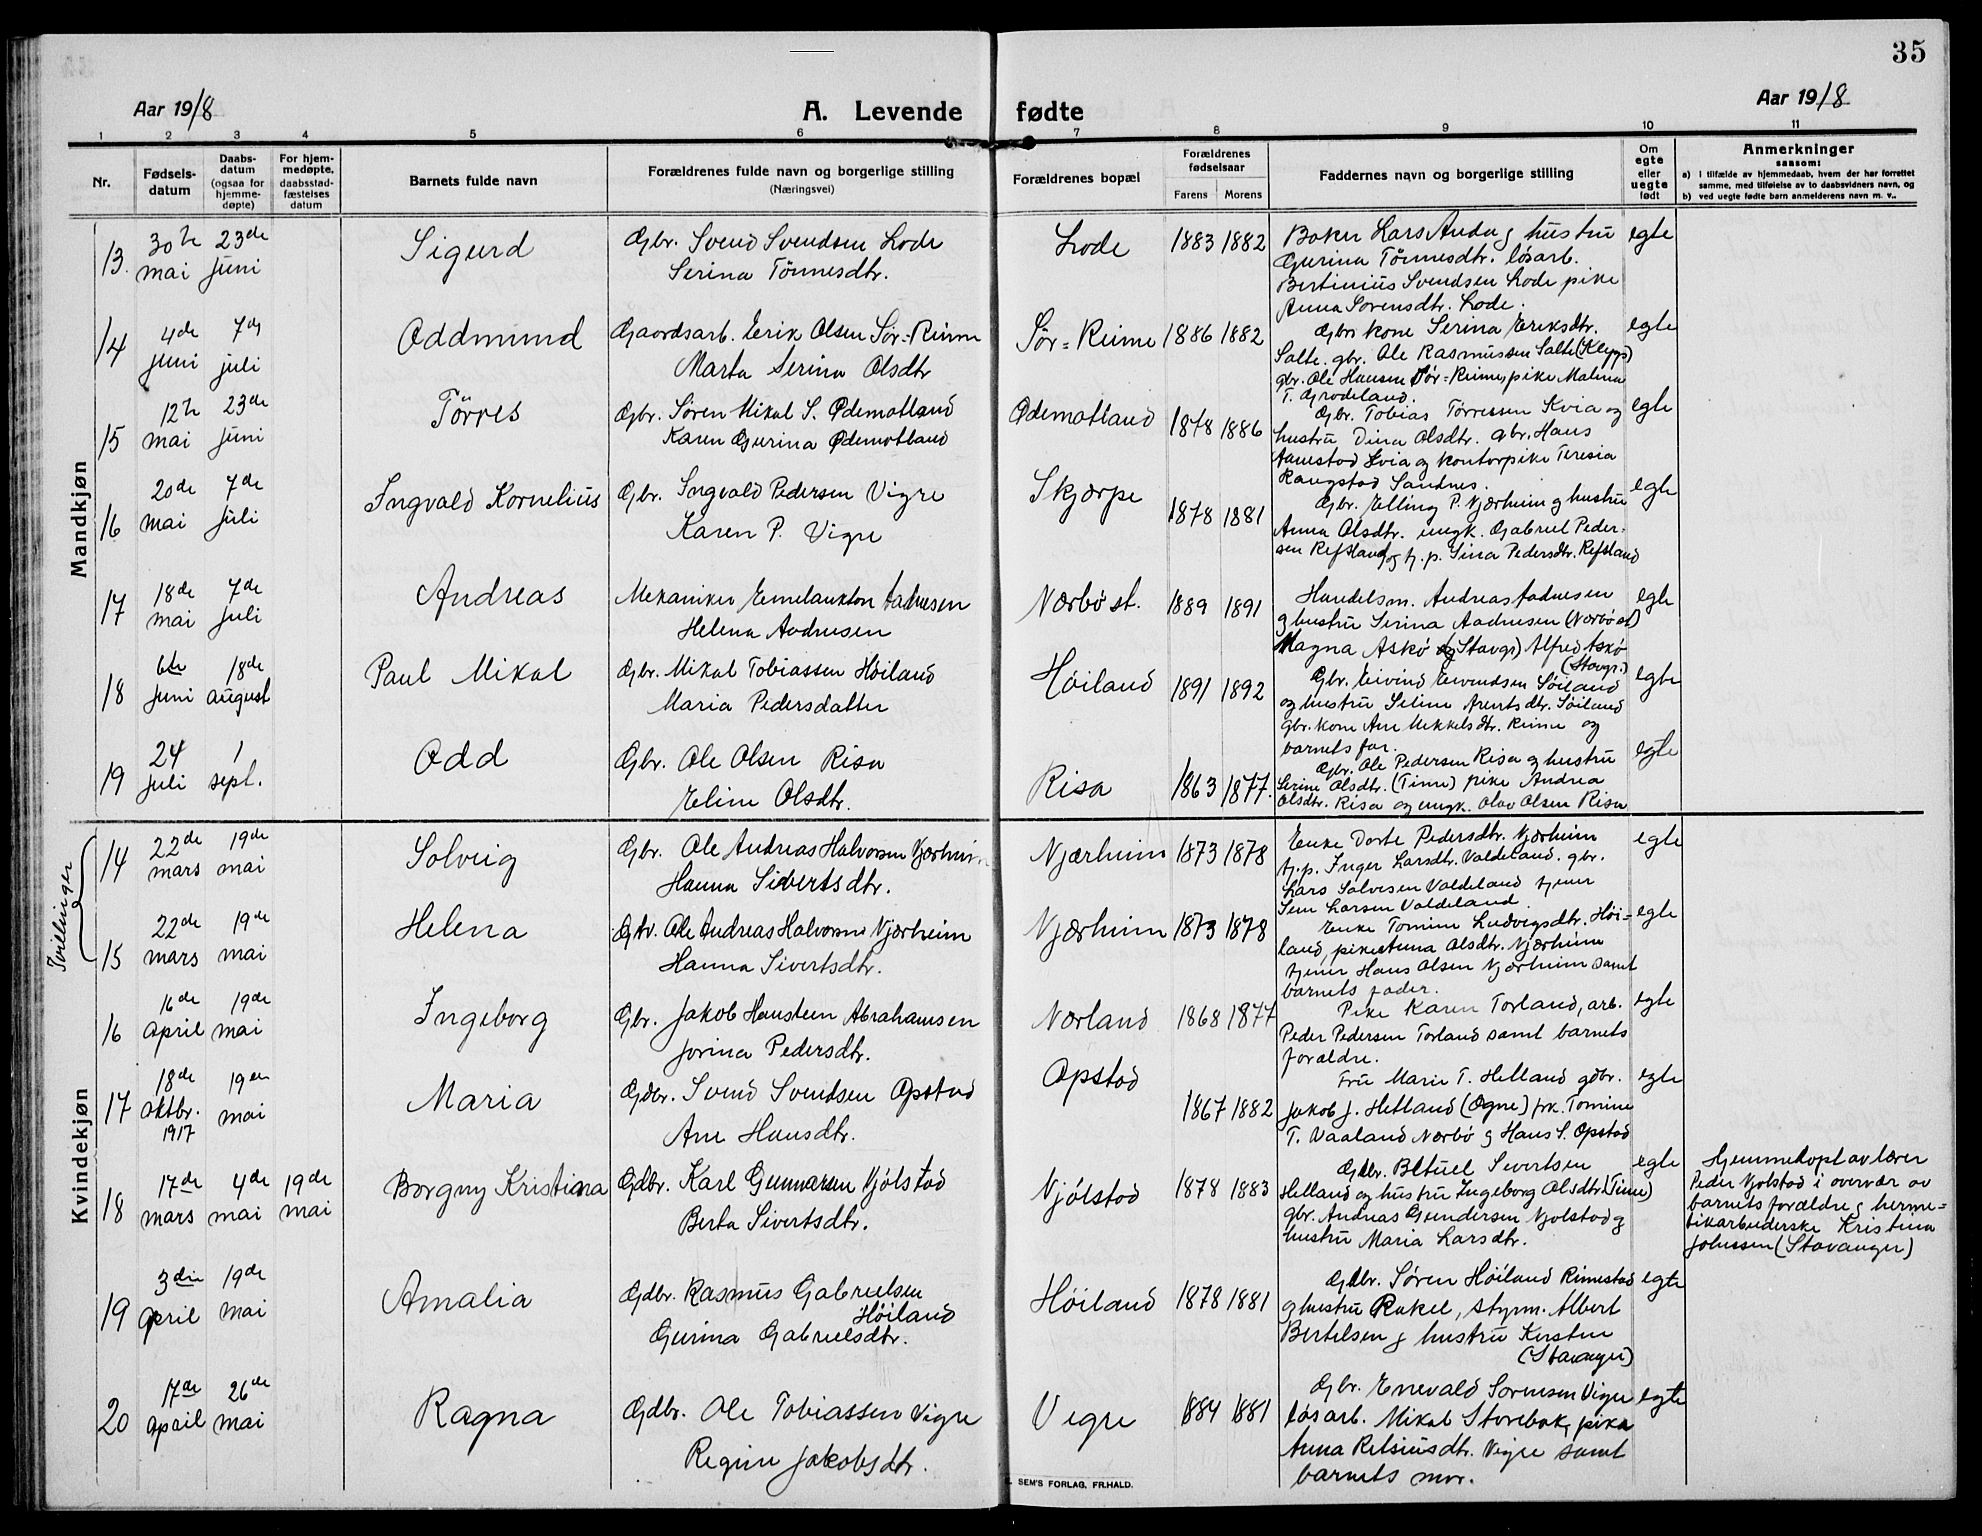 35
Aar 1918
A. Levende fødte
Aar 1918
1 2 3 4 5 6 7 8 9 10 11
Nr.
Fødsels-
datum
Daabs-
datum
(ogsaa for
hjemme-
døpte)
For hjem-
medøpte,
daabsstad-
fæstelses
datum
Barnets fulde navn
Forældrenes fulde navn og borgerlige stilling
(Næringsvei)
Forældrenes bopæl
Forældrenes
fødselsaar
Farens Morens
Faddernes navn og borgerlige stilling
Om
egte
eller
uegte
født
Anmerkninger
saasom:
a) i tilfælde av hjemmedaab, hvem der har forrettet
samme, med tilføielse av to daabsvidners navn, og
b) ved uegte fødte barn anmelderens navn m. v..
Mandkjøn
13. 30te mai 23de juni
Sigurd
Gbr. Svend Svendsen Lode
Serina Tönnesdtr.
Lode 1883 1882
Baker Lars Anda og hustru
Gurina Tönnesdtr. lösarb.
Bertinius Svendsen Lode pike
Anna Sorensdtr. Lode.
egte
14 4de juni 7de juli
Oddmund
Gaardsarb. Eerik Olsen Sör=Reime
Marta Serina Olsdtr
Sör=Reime 1886 1882
Gbrs kone Serina Eriksdtr.
Salte. gbr. Ole Rasmussen Salte (Klepp)
gbr. Ole Hansen Sör=Reime, pike Malena
T. Grödeland.
egte
15 12te mai 23de juni
Törres
Gbr. Sören Mikal S. Ødemotland
Karen Gurina Ødemotland
Ødemotland 1878 1886
Gbr. Tobias Törressen Kvia og
hustru Dina Olsdtr. gbr. Hans
Aanestad Kvia og kontorpike Teresia
Raugstad Sandnes.
egte
16 20de mai 7de juli
Ingvald Kornelius
Gbr. Ingvald Pedersen Vigre
Karen P. Vigre
Skjærpe 1878 1881
Gbr. Elling P. Njærheim og hustru
Anna Olsdtr. ungk. Gabriel Peder-
sen Refsland og tj. p. Sina Pedersdtr. Refsland
egte
17 18de mai 7de juli
Andreas
Mekaniker Emelankton Aadnesen
Helena Aadnesen
Nærbö st. 1889 1891
Handelsm. Andreas Aadnesen
og hustru Serina Aadnesen (Nærbö st)
Magna Askö (Stavgr) Alfred Askö
(Stavgr.)
egte
18 6te juni 18de august
Paul Mikal
Gbr. Mikal Tobiassen Höiland
Maria Pedersdatter
Höiland 1891 1892
Gbr. Eivind Eivendsen Söiland
og hustru Seline Arentsdtr. Söiland
gbr. kone Ane Mikkelsdtr. Reime og
barnets far.
egte
19 24 juli 1 sept.
Odd
Gbr. Ole Olsen Risa
Eline Olsdtr.
Risa 1863 1877.
Gbr. Ole Pedersen Risa og hustru
Serine Olsdtr. (Time) pike Andrea
Olsdtr. Risa og ungk. Olav Olsen Risa
egte
Kvindekjøn
Tvillinger
14 22de mars 19de mai
Solveig
Gbr. Ole Andreas Halvorsen Njærheim
Hanna Sivertsdtr.
Njærheim 1873 1878
Enke Dorte Pedersdtr. Njærheim
tj. p. Inger Larsdtr. Valdeland. gbr.
Lars Salvesen Valdeland tjener
Sem Larsen Valdeland.
egte
15 22de mars 19de mai
Helena
Gbr. Ole Andreas Halvorsen Njærheim
Hanna Sivertsdtr.
Njærheim 1873 1878
Enke Tomine Ludvigsdtr. Höi=
land, pike Anna Olsdtr. Njærheim
tjener Hans Olsen Njærheim samt
barnets fader.
egte
16 16de april 19de mai
Ingeborg
Gbr. Jakob Hanstein Abrahamsen
Jorina Pedersdtr.
Nærland 1868 1877
Pike Karen Torland, arb.
Peder Pedersen Torland samt barnets
forældre.
egte
17 18de oktbr. 1917 19de mai
Maria
Gdbr. Svend Svendsen Opstad
Ane Hansdtr.
Opstad 1867 1882
Fru Marie T. Helland gdbr.
Jakob J. Helland (Ogne) frk. Tomine
T. Vaaland Nærbö og Hans S. Opstad
egte
18 17de mars 4de mai 19de mai
Borgny Kristiana
Gdbr. Karl Gunnarsen Njölstad
Berta Sivertsdtr.
Njölstad 1878 1883
Gdbr. Betuel Sivertsen
Helland og hustru Ingeborg Olsdtr. (Time)
gbr. Andreas Gundersen Njolstad og
hustru Maria Larsdtr.
egte
Hjemmedöpt av lærer
Peder Njolstad i overvær av
barnets forældre og herme=
tikarbeiderske Kristina
Johnssen (Stavanger)
19 3die april 19de mai
Amalia
Gdbr. Rasmus Gabrielsen
Höiland
Gurina Gabrielsdtr.
Höiland 1878 1881
Gdbr. Sören Höiland Rimestad
og hustru Rakel, styrm. Albert
Bertelsen og hustru Kirsten
(Stavanger)
egte
20 17de april 26de mai
Ragna
Gdbr. Ole Tobiassen Vigre
Regine Jakobsdtr.
Vigre 1884 1881
Gbr. Enevald Sorensen Vigre
lösarb. Mikal Storebak, pike
Anna Retsiusdtr. Vigre samt
barnets mor.
egte
SEM'S FORLAG, FR.HALD.